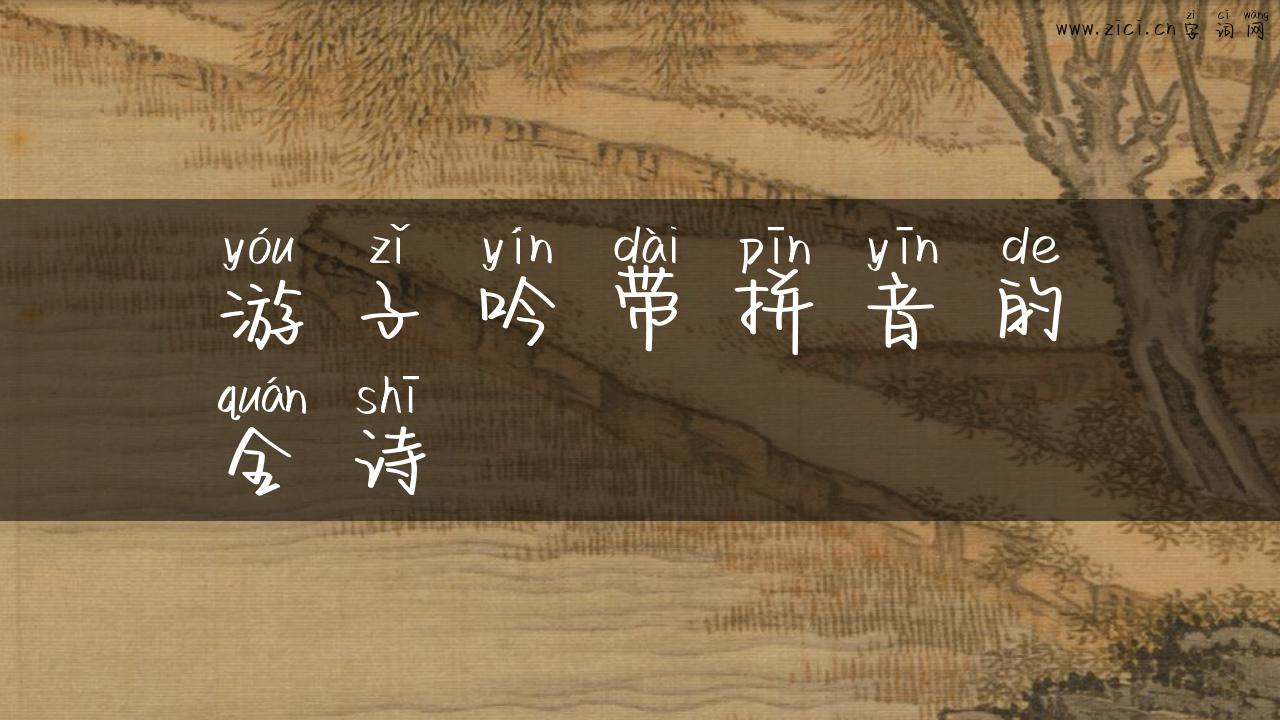 zì cí wǎng
www.zici.cn字词网
yóu zǐ yín dài pīn yīn de
游子吟带拼音的
quán shī
全诗